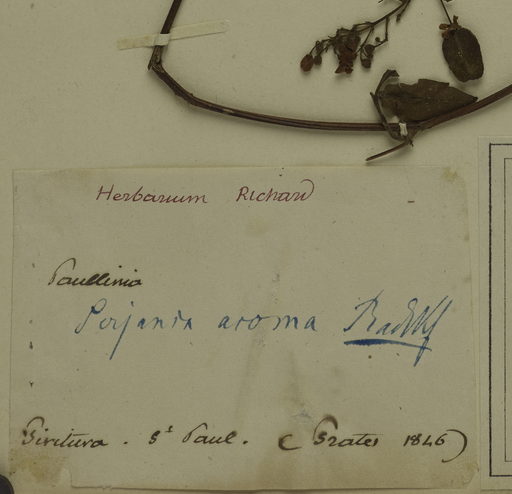 Herbarium Richard
Paullinia
Serjania aroma Radlk
Biritura. St Paul. (Prates 1846)